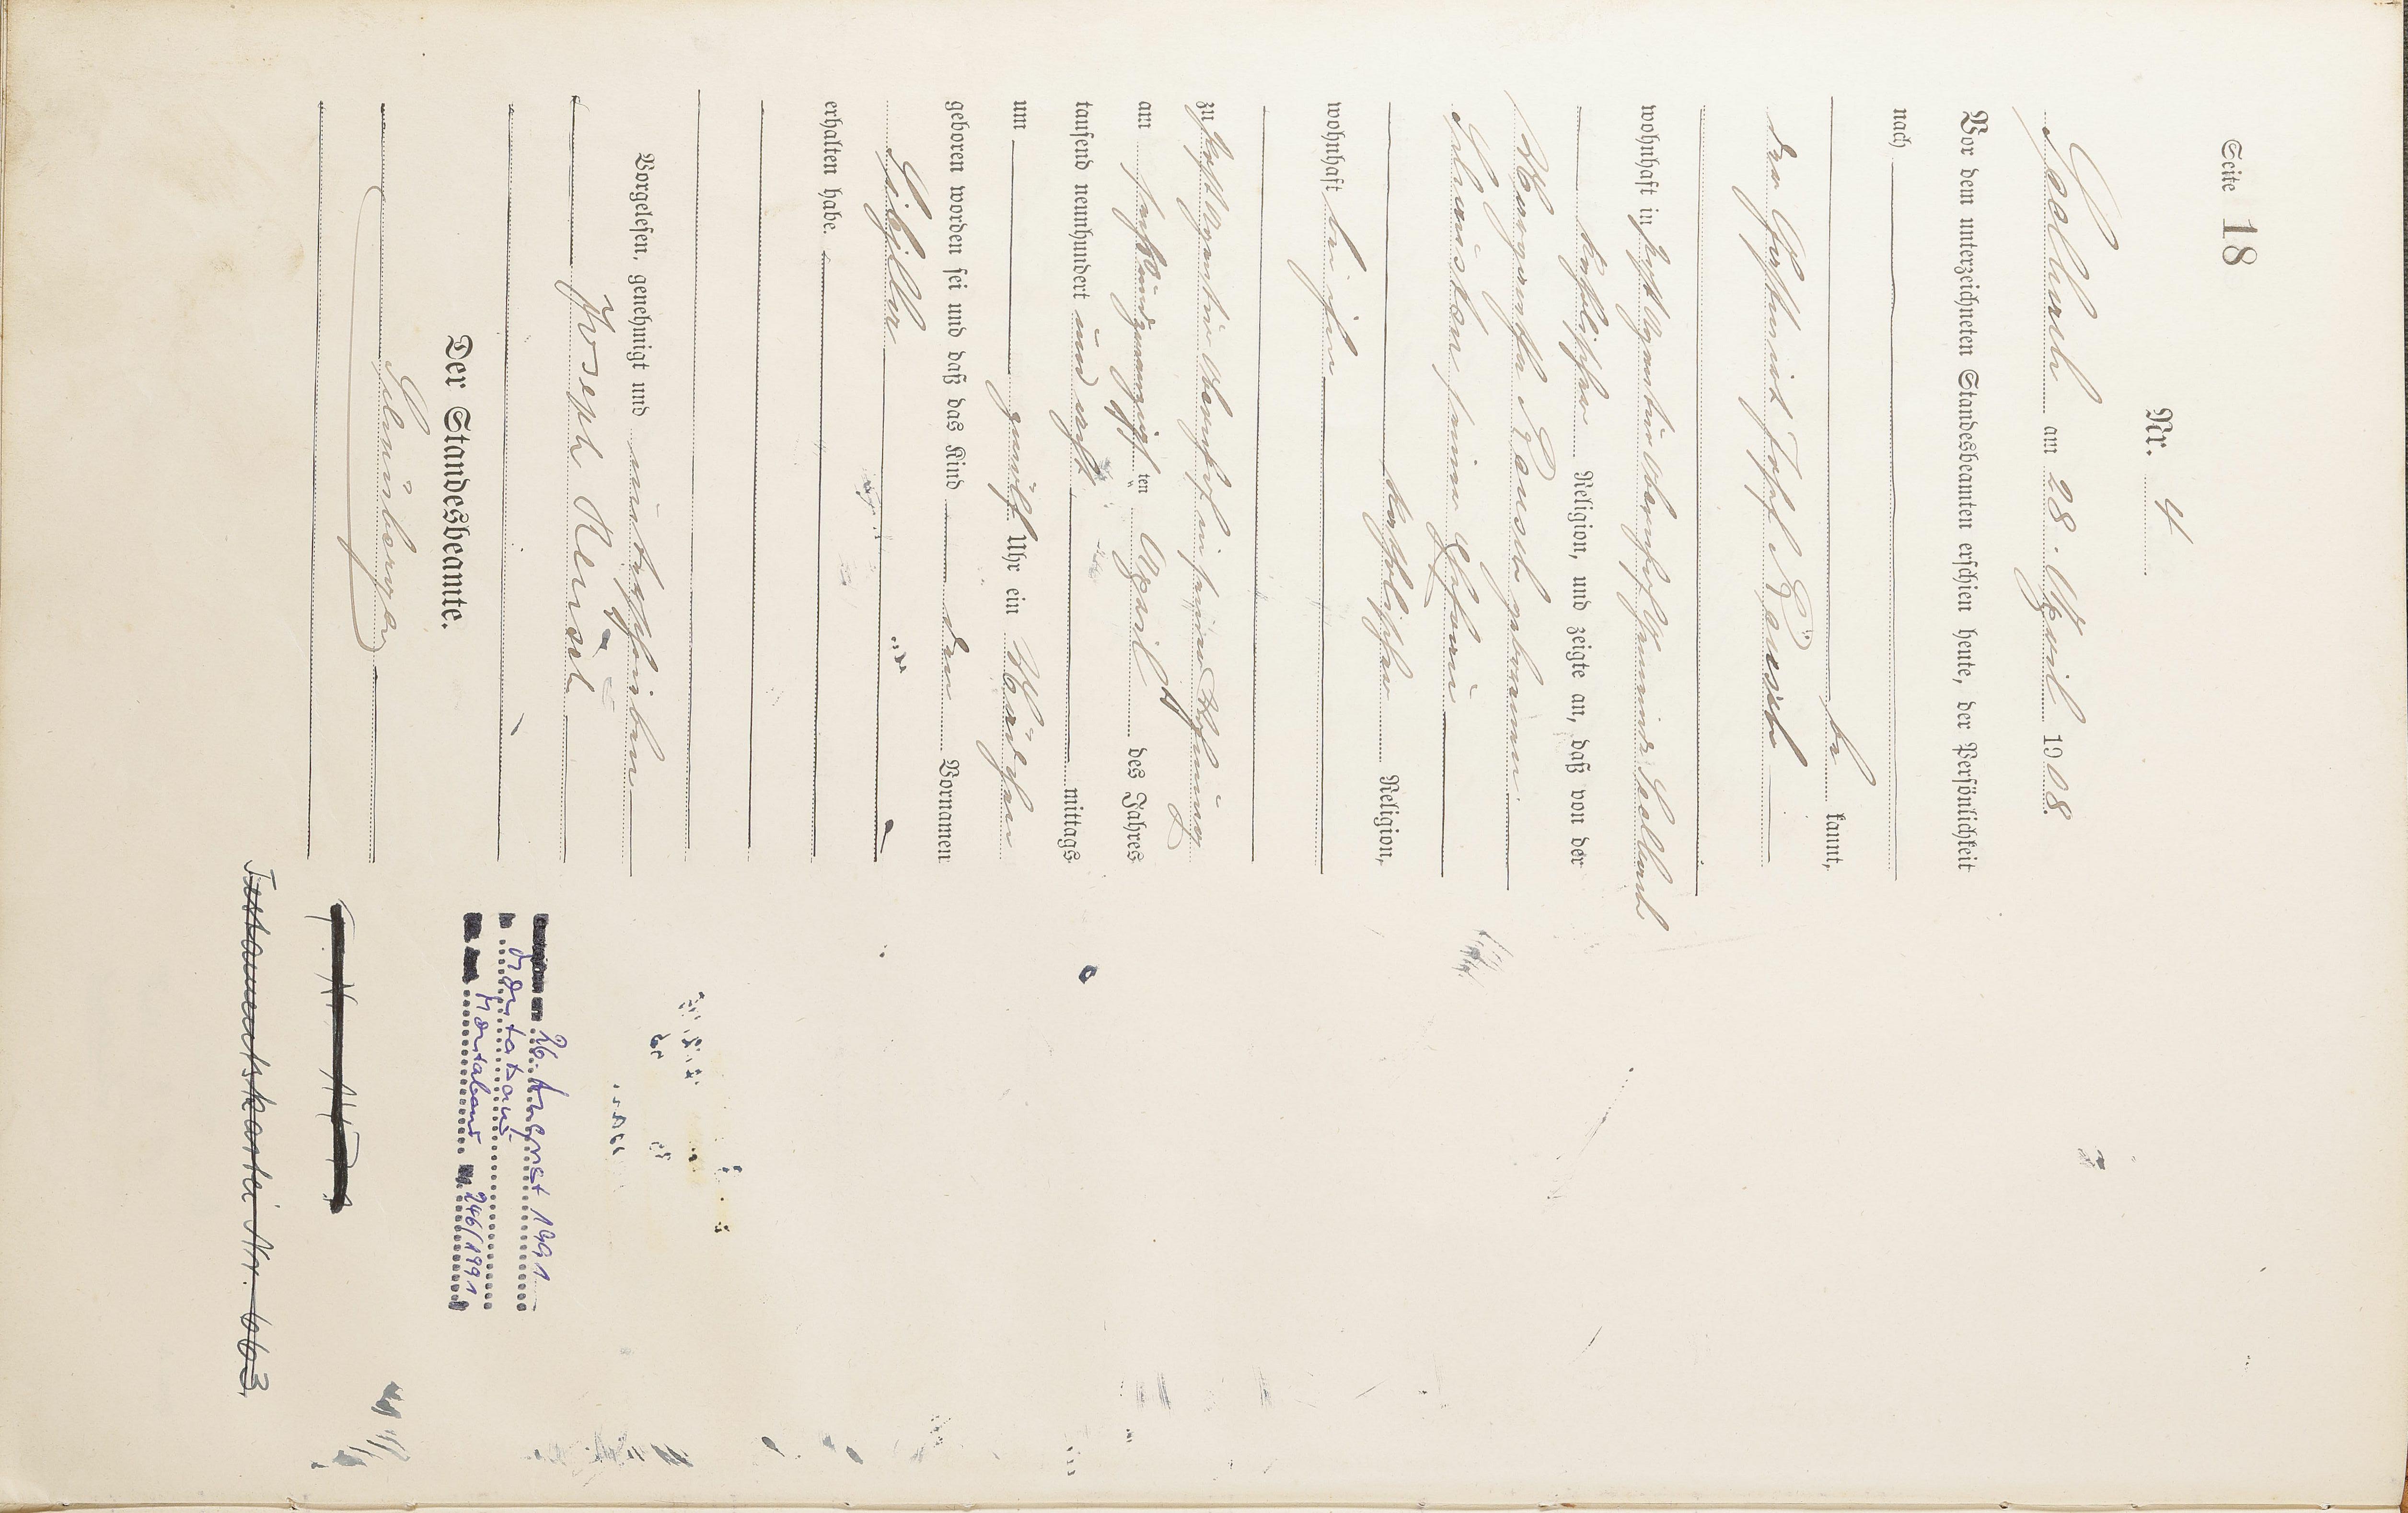 Seite 18
Nr. 4
Selbach am 28. April 1908.
Vor dem unterzeichneten Standesbeamten erschien heute, der Persönlichkeit
nach
be kannt,
der Gastwirt Josef Reusch
wohnhaft in Selbach
katholischer Religion, und zeigte an, daß von der
Margaretha Reusch geborenen
seiner Ehefrau
katholischer Religion,
wohnhaft bei ihm
zu in seiner Wohnung
am sechsundzwanzigsten April des Jahres
tausend neunhundert und acht mittags
um zwölf Uhr ein Mädchen
geboren worden sei und daß das Kind den Vornamen
erhalten habe.
Vorgelesen, genehmigt und unterschrieben
Joseph Reusch
Der Standesbeamte.
26. August 1991
Montabaur
Montabaur 246/1991
Testamentskartei Nr. 663